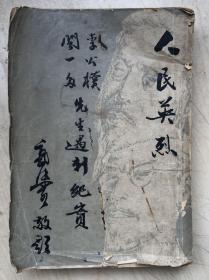 人民英烈
李公樸
聞一多先生遇刺紀實
敬題